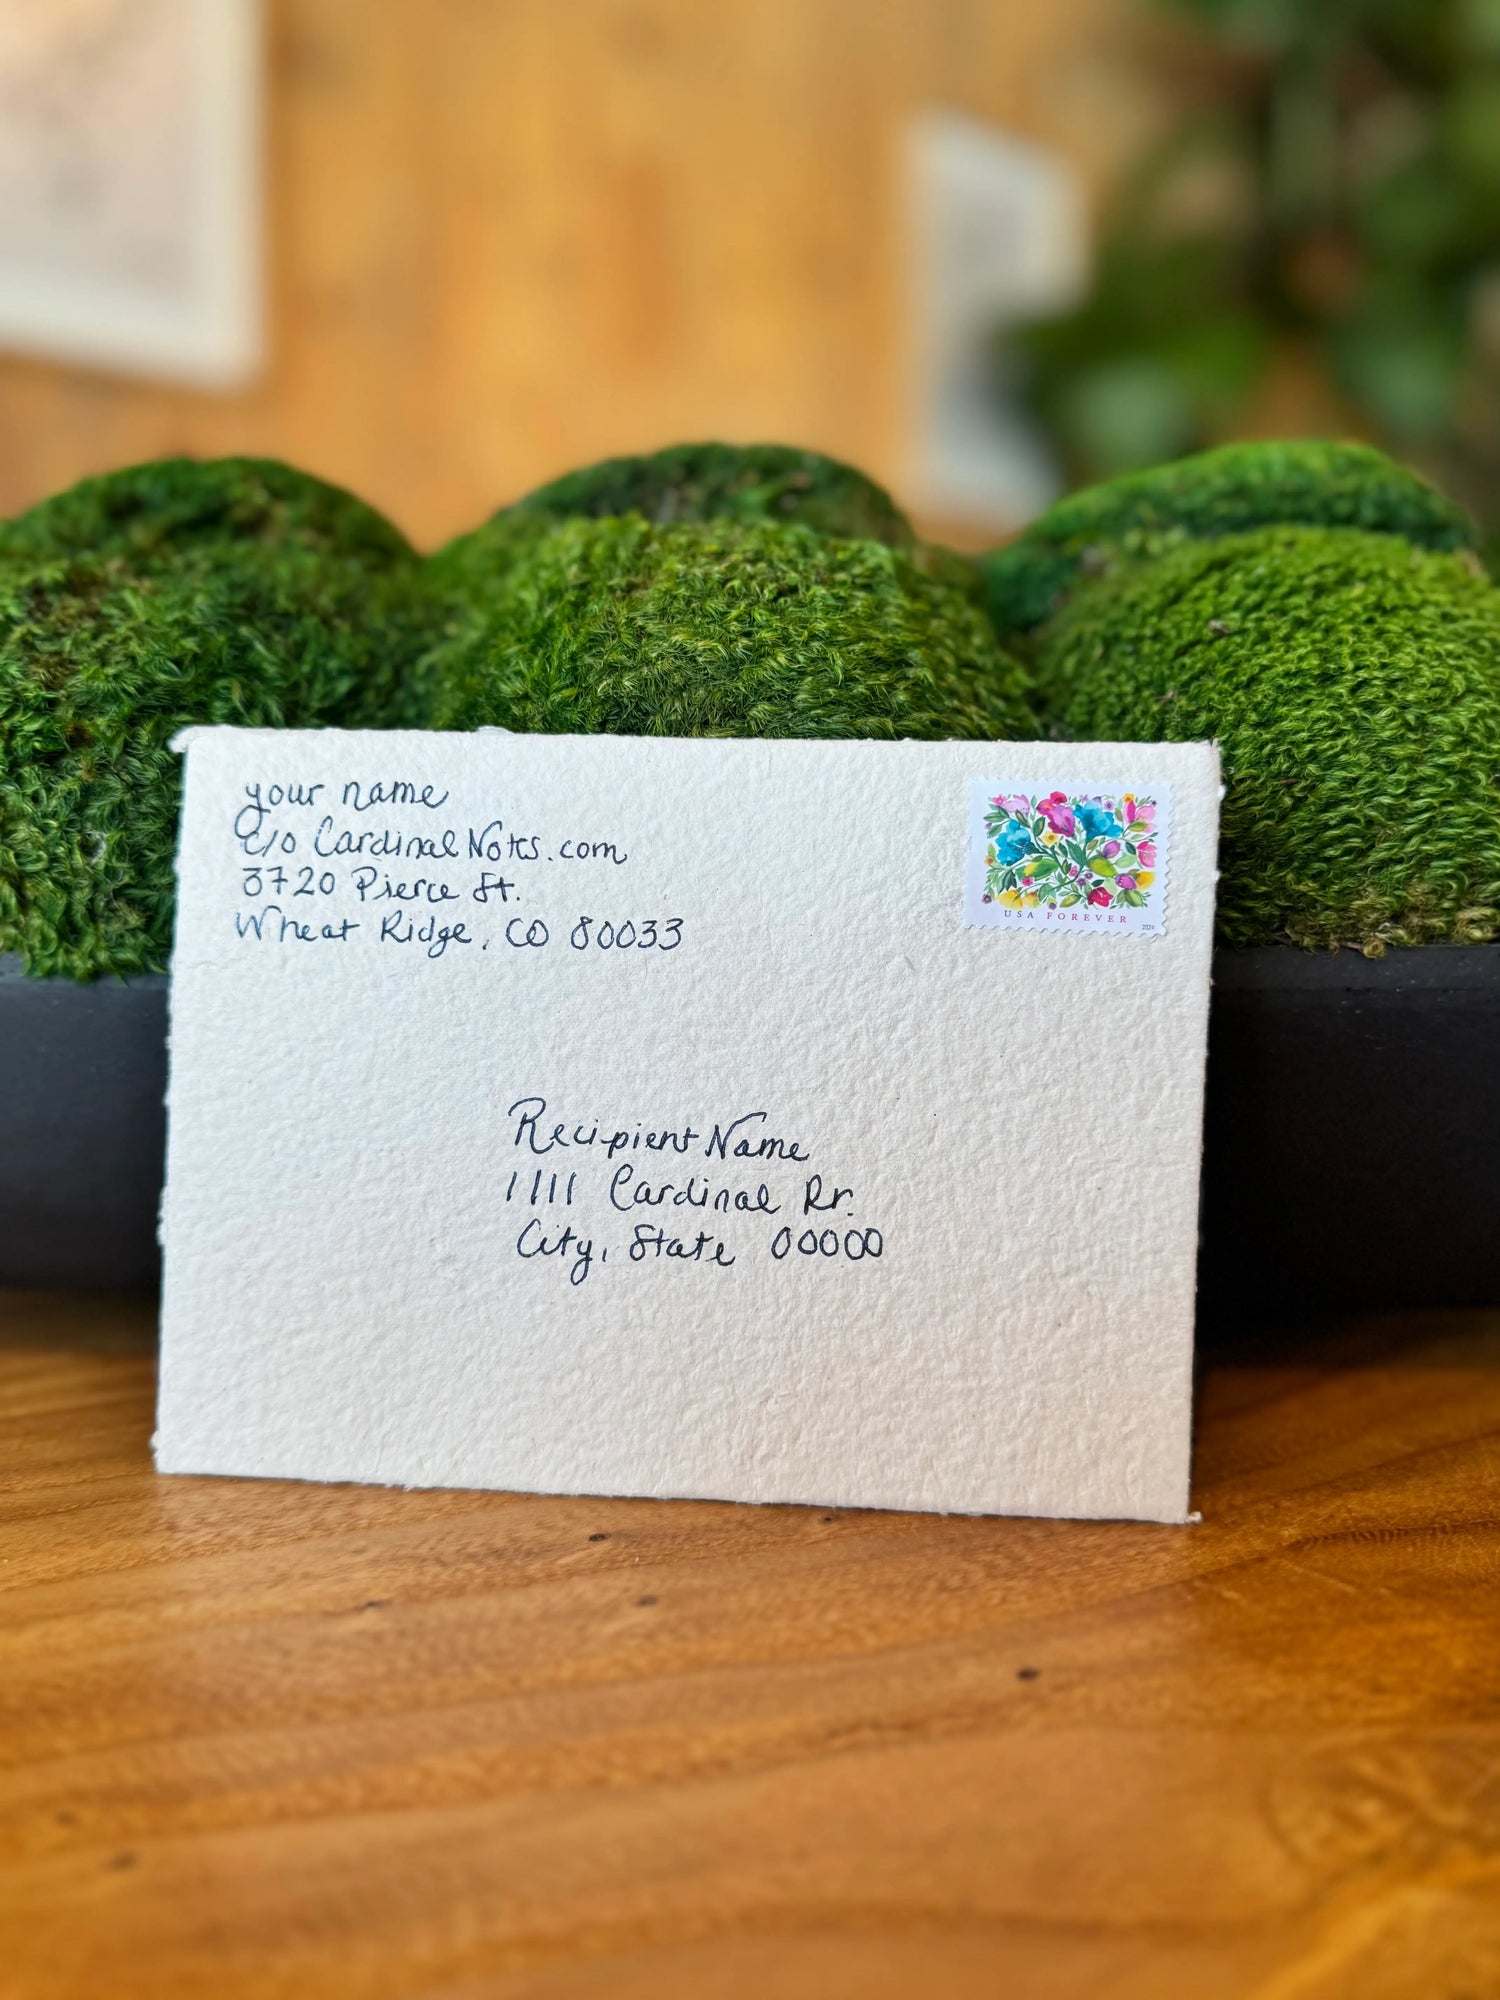 your name
c/o CardinalNotes.com
3720 Pierce St.
Wheat Ridge, CO 80033
USA FOREVER
2024
Recipient Name
1111 Cardinal Rr.
City, State 00000